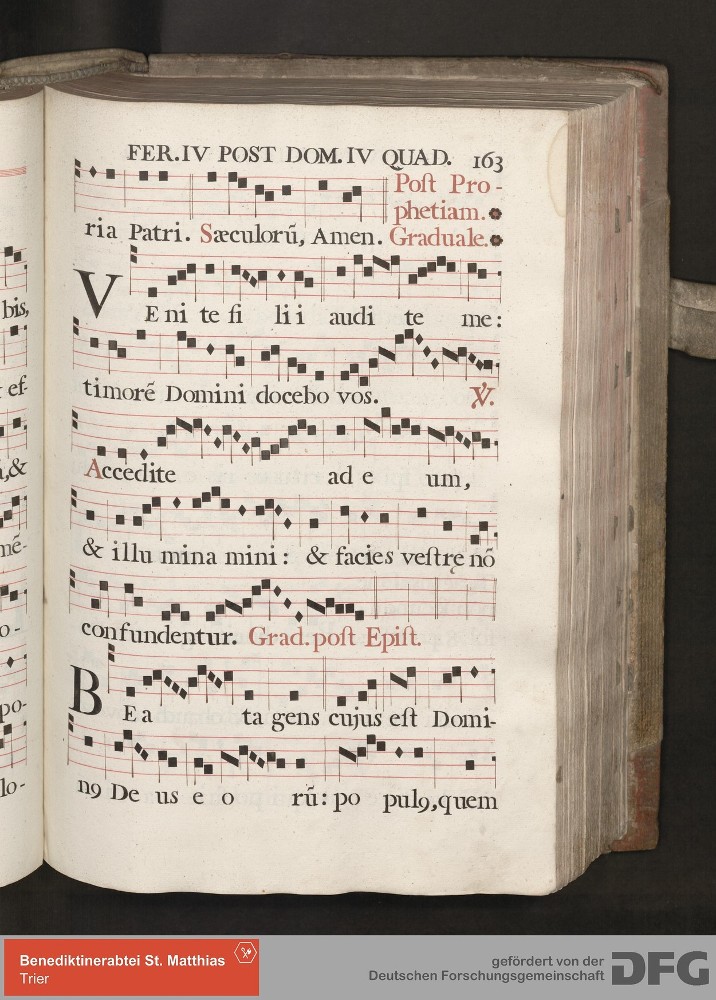 FER.IV POST DOM. IV QUAD. 163
Poſt Pro-
phetiam.
ria Patri. Sæculorũ, Amen. Graduale.
VEni te fi li i audi te me:
timorẽ Domini docebo vos. ℣.
Accedite ad e um,
& illu mina mini: & facies veſtrę nõ
confundentur. Grad. poſt Epiſt.
BEa ta gens cujus eſt Domi-
nꝰ De us e o rũ: po pulꝰ, quem
bis,
ef-
,&
mẽ-
o-
po-
lo-
Benediktinerabtei St. Matthias
Trier
gefördert von der
Deutschen Forschungsgemeinschaft
DFG